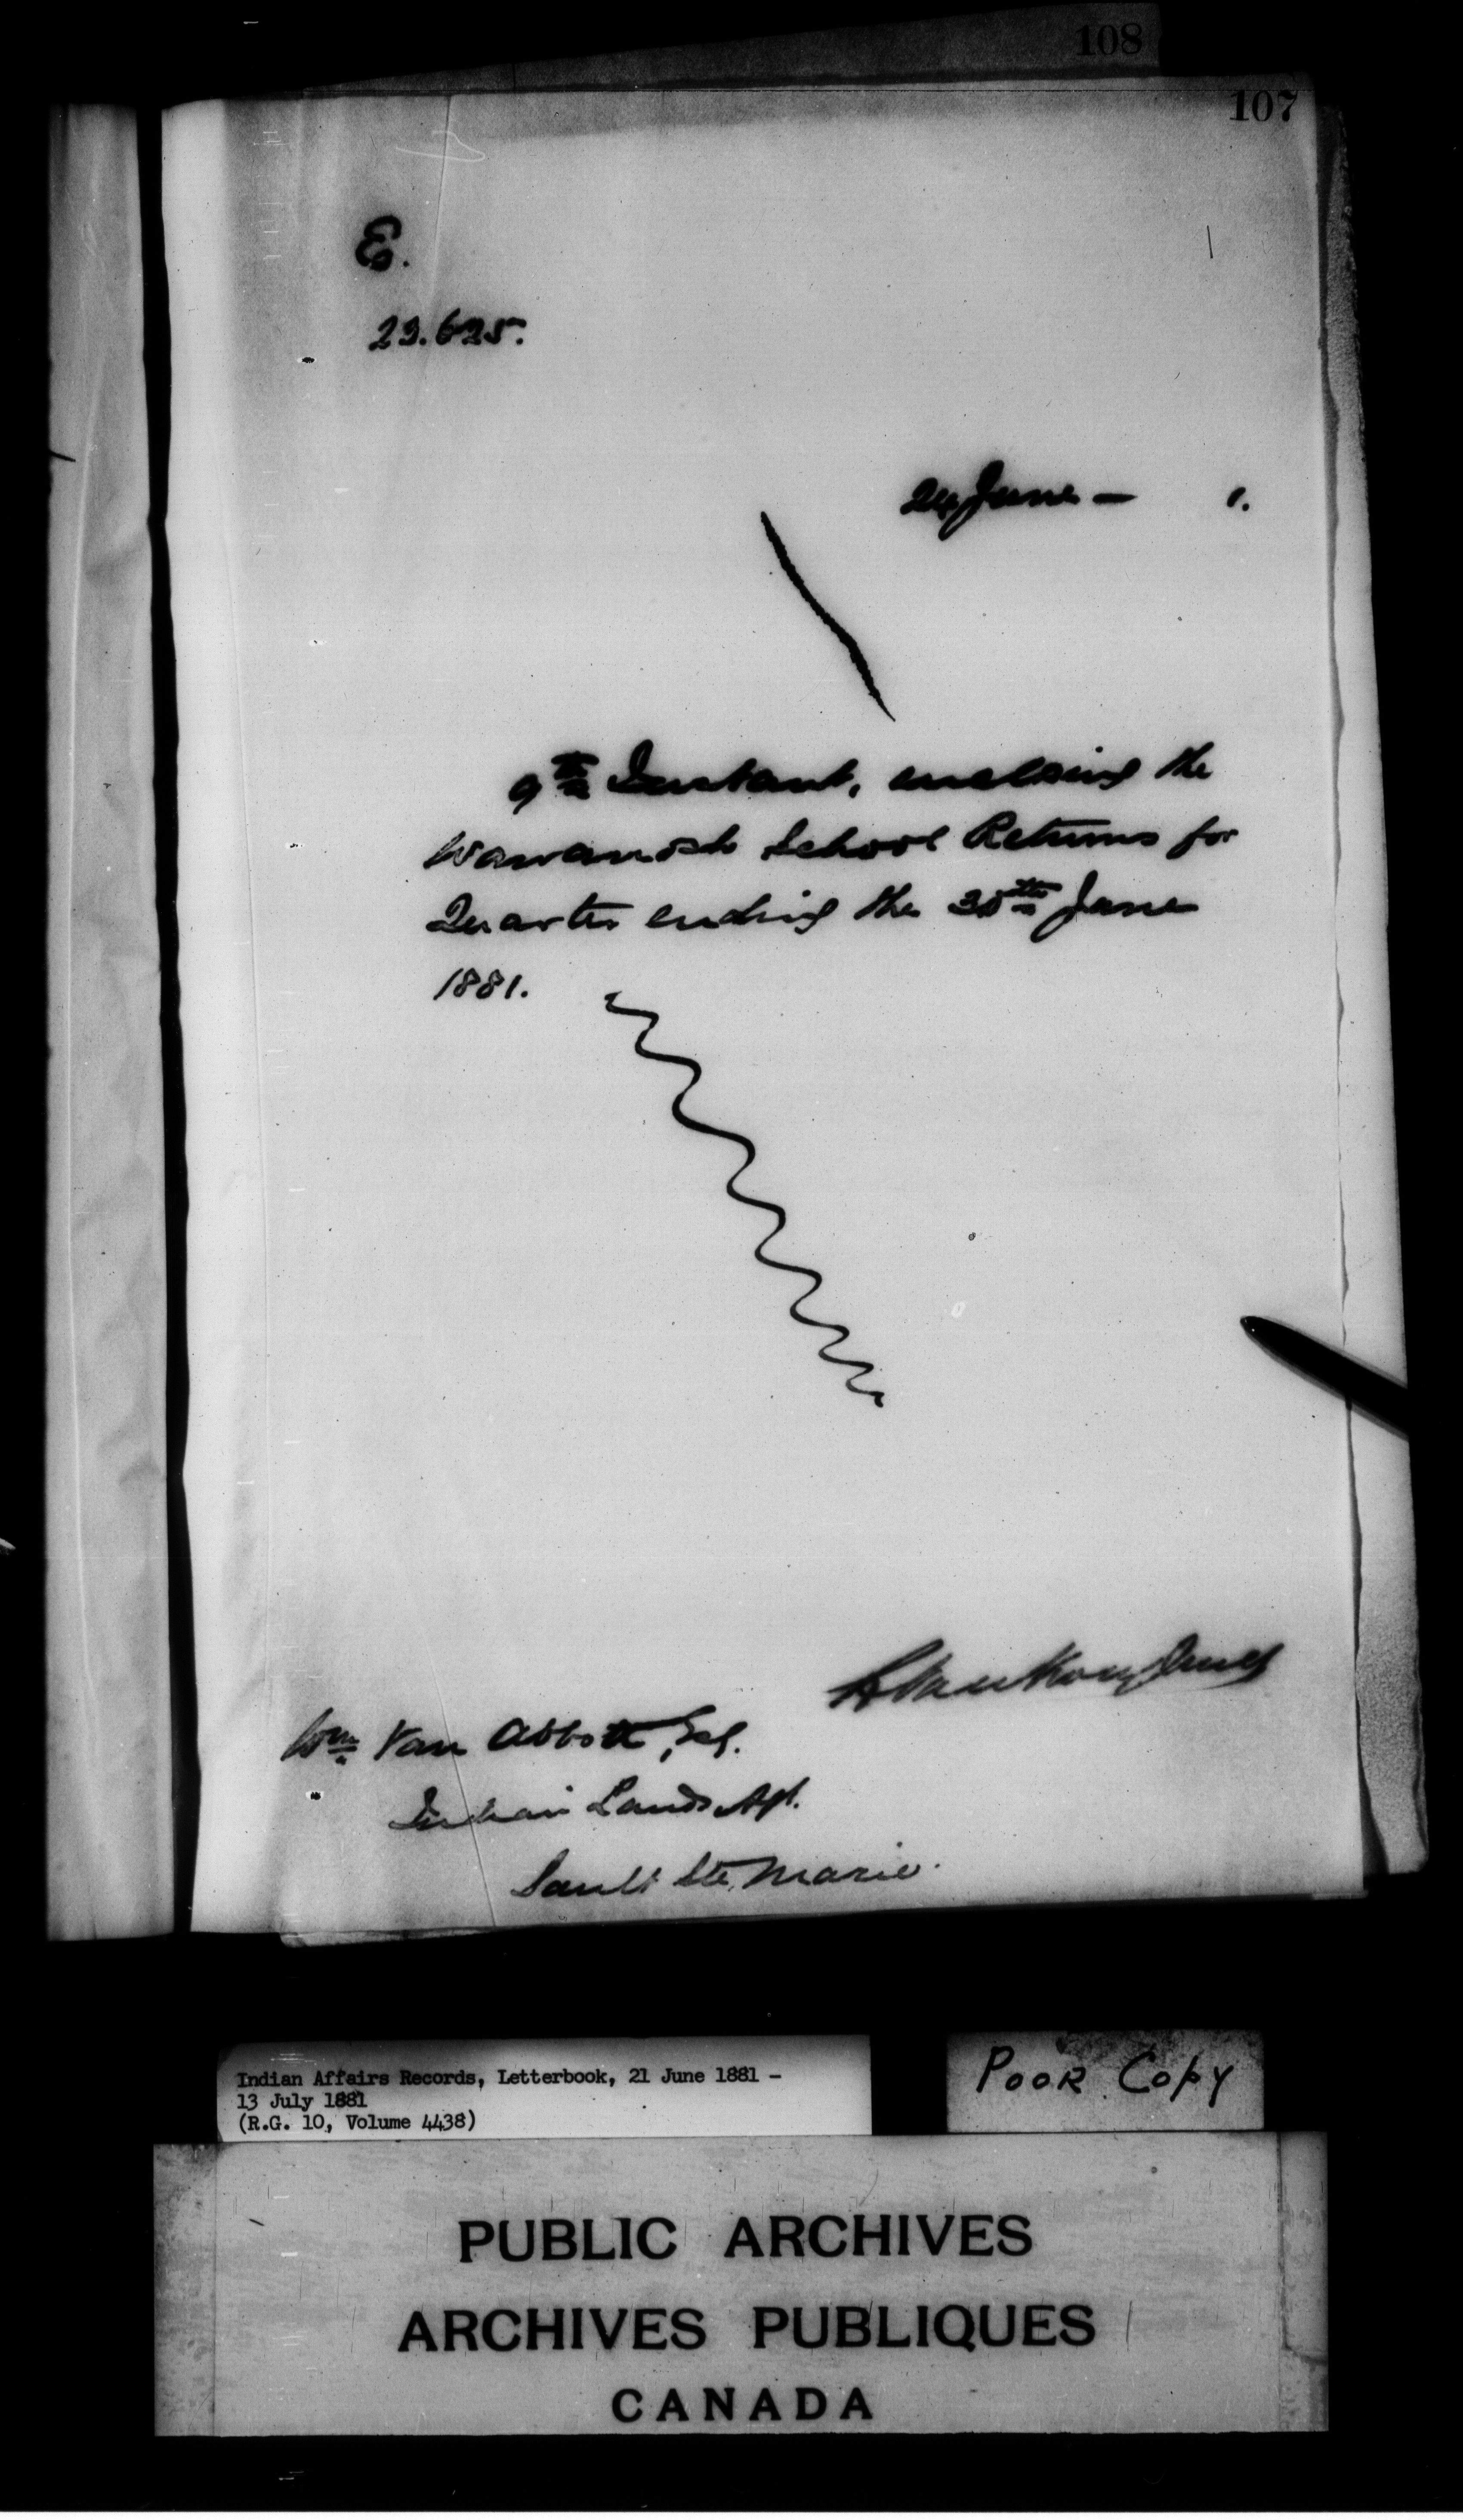 108
107
E.
29.625.
24 June — 1.
9th Instant, enclosing the
Wawanosh School Returns for
Quarter ending the 30th June
1881.
Wm Van Abbott, Esq.
Indian Lands Agt.
Sault Ste. Marie.
Indian Affairs Records, Letterbook, 21 June 1881 -
13 July 1881
(R.G. 10, Volume 4438)
POOR COPY
PUBLIC ARCHIVES
ARCHIVES PUBLIQUES
CANADA